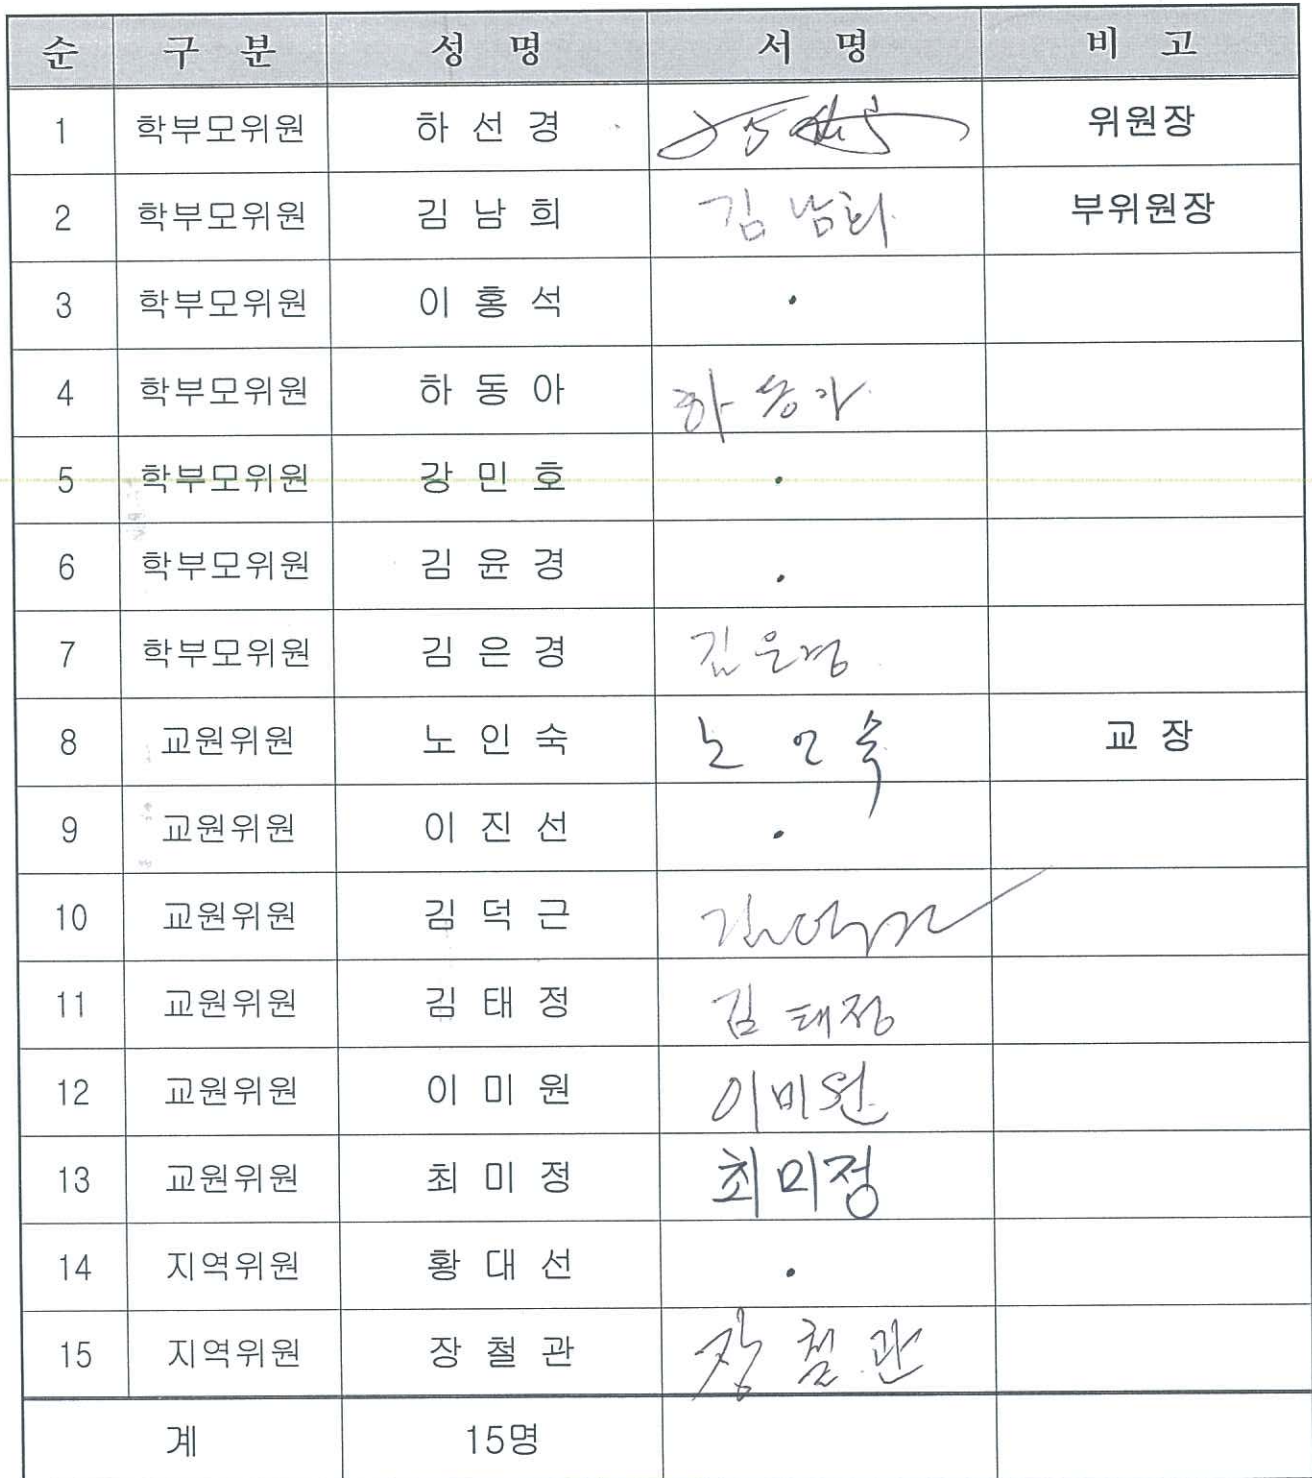 순 구 분 성 명 서 명 비 고
1 학부모위원 하 선 경 위원장
2 학부모위원 김 남 희 김 남희 부위원장
3 학부모위원 이 홍 석 .
4 학부모위원 하 동 아 하 동아
5 학부모위원 강 민 호 .
6 학부모위원 김 윤 경 .
7 학부모위원 김 은 경 김은경
8 교원위원 노 인 숙 노 인 숙 교 장
9 교원위원 이 진 선 .
10 교원위원 김 덕 근 김덕근
11 교원위원 김 태 정 김 태정
12 교원위원 이 미 원 이미원
13 교원위원 최 미 정 최미정
14 지역위원 황 대 선 .
15 지역위원 장 철 관 장 철 관
계 15명